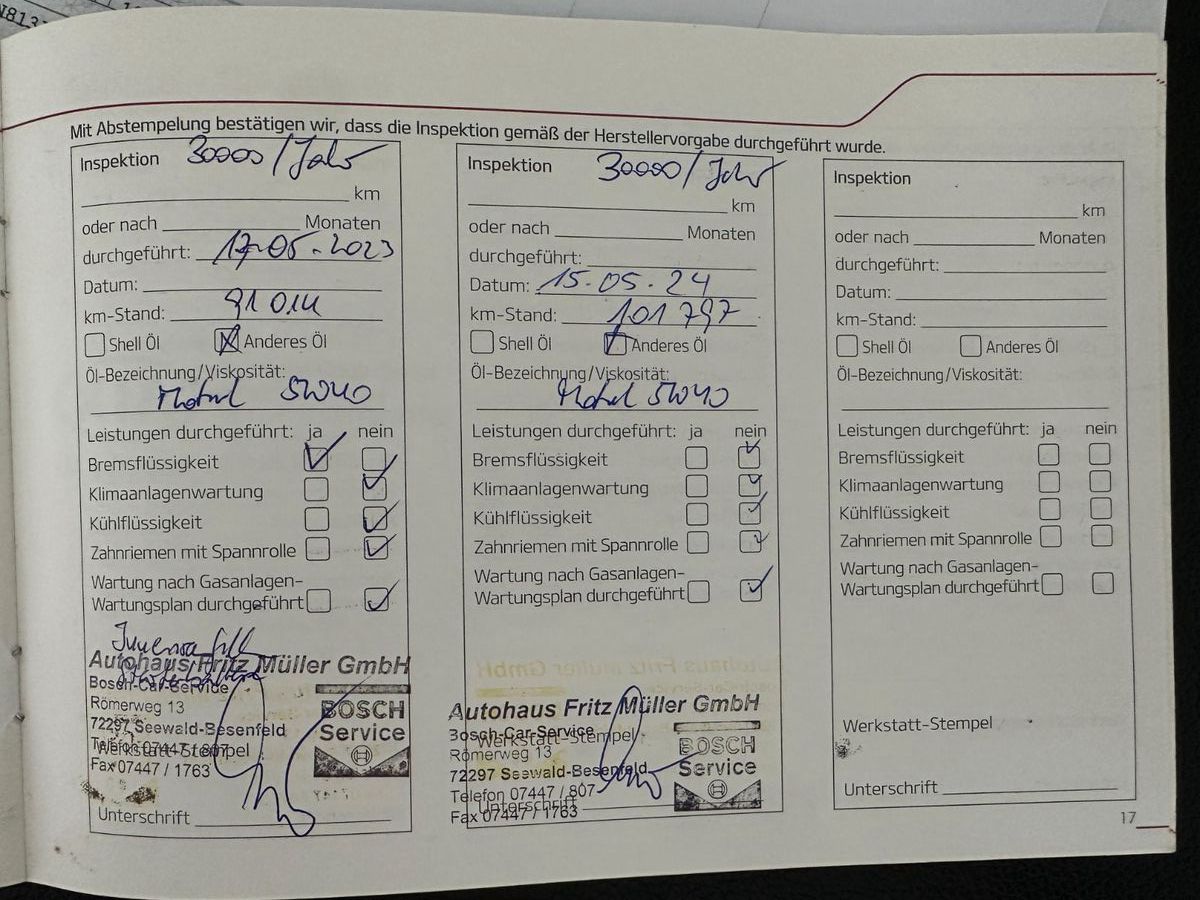 N813
Mit Abstempelung bestätigen wir, dass die Inspektion gemäß der Herstellervorgabe durchgeführt wurde.
Inspektion 30000/Jahr
km
oder nach Monaten
durchgeführt: 17.05.2023
Datum:
km-Stand: 91 014
Shell Öl Anderes Öl
Öl-Bezeichnung/Viskosität:
Motul 5W40
Leistungen durchgeführt: ja nein
Bremsflüssigkeit
Klimaanlagenwartung
Kühlflüssigkeit
Zahnriemen mit Spannrolle
Wartung nach Gasanlagen-
Wartungsplan durchgeführt
Autohaus Fritz Müller GmbH
Bosch-Car-Service
Römerweg 13
72297 Seewald-Besenfeld
Telefon 07447 / 807
Fax 07447 / 1763
BOSCH
Service
Werkstatt-Stempel
Unterschrift
Inspektion 30000/Jahr
km
oder nach Monaten
durchgeführt:
Datum: 15.05.24
km-Stand: 101 797
Shell Öl Anderes Öl
Öl-Bezeichnung/Viskosität:
Motul 5W40
Leistungen durchgeführt: ja nein
Bremsflüssigkeit
Klimaanlagenwartung
Kühlflüssigkeit
Zahnriemen mit Spannrolle
Wartung nach Gasanlagen-
Wartungsplan durchgeführt
Autohaus Fritz Müller GmbH
Bosch-Car-Service
Römerweg 13
72297 Seewald-Besenfeld
Telefon 07447 / 807
Fax 07447 / 1763
BOSCH
Service
Werkstatt-Stempel
Unterschrift
Inspektion
km
oder nach Monaten
durchgeführt:
Datum:
km-Stand:
Shell Öl Anderes Öl
Öl-Bezeichnung/Viskosität:
Leistungen durchgeführt: ja nein
Bremsflüssigkeit
Klimaanlagenwartung
Kühlflüssigkeit
Zahnriemen mit Spannrolle
Wartung nach Gasanlagen-
Wartungsplan durchgeführt
Werkstatt-Stempel
Unterschrift
17